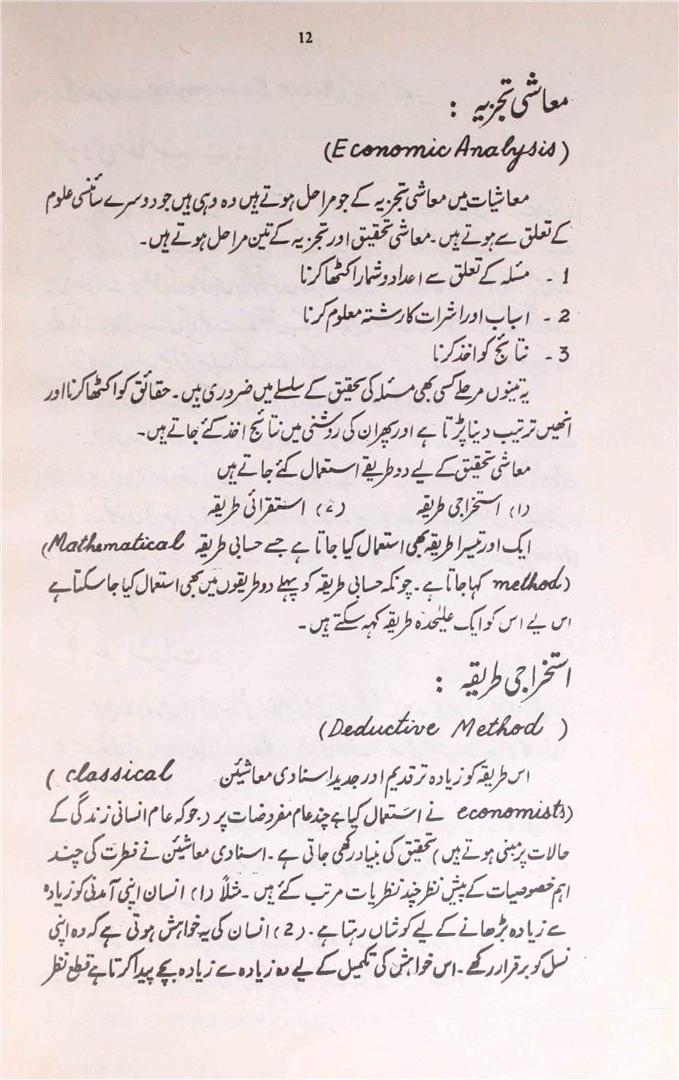 12
معاشی تجزیہ :
(Economic Analysis)
معاشیات میں معاشی تجزیہ کے جو مراحل ہوتے ہیں وہ وہی ہیں جو دوسرے سائنسی علوم
کے تعلق سے ہوتے ہیں۔ معاشی تحقیق اور تجزیہ کے تین مراحل ہوتے ہیں۔
1 ۔ مسئلہ کے تعلق سے اعداد و شمار اکٹھا کرنا
2 ۔ اسباب اور اثرات کا رشتہ معلوم کرنا
3 ۔ نتائج کو اخذ کرنا
یہ تینوں مرحلے کسی بھی مسئلہ کی تحقیق کے سلسلے میں ضروری ہیں۔ حقائق کو اکٹھا کرنا اور
انھیں ترتیب دینا پڑتا ہے اور پھر ان کی روشنی میں نتائج اخذ کئے جاتے ہیں۔
معاشی تحقیق کے لیے دو طریقے استعمال کئے جاتے ہیں
(۱) استخراجی طریقہ (۲) استقرائی طریقہ
ایک اور تیسرا طریقہ بھی استعمال کیا جاتا ہے جسے حسابی طریقہ (Mathematical
method) کہا جاتا ہے۔ چونکہ حسابی طریقہ کو پہلے دو طریقوں میں بھی استعمال کیا جا سکتا ہے
اس لیے اس کو ایک علیٰحدہ طریقہ کہہ سکتے ہیں۔
استخراجی طریقہ :
(Deductive Method )
اس طریقہ کو زیادہ تر قدیم اور جدید اسنادی معاشیئن ( classical
economists) نے استعمال کیا ہے چند عام مفروضات پر (جو کہ عام انسانی زندگی کے
حالات پر مبنی ہوتے ہیں) تحقیق کی بنیاد رکھی جاتی ہے۔ اسنادی معاشیئن نے فطرت کی چند
اہم خصوصیات کے پیش نظر چند نظریات مرتب کئے ہیں۔ مثلاً (۱) انسان اپنی آمدنی کو زیادہ
سے زیادہ بڑھانے کے لیے کوشاں رہتا ہے۔ (2) انسان کی یہ خواہش ہوتی ہے کہ وہ اپنی
نسل کو برقرار رکھے۔ اس خواہش کی تکمیل کے لیے وہ زیادہ سے زیادہ بچے پیدا کرتا ہے قطع نظر